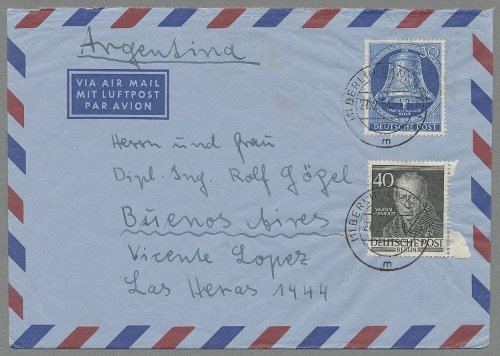 Argentina
VIA AIR MAIL
MIT LUFTPOST
PAR AVION
Herrn und Frau
Dipl. Ing. Rolf Gögel
Buenos Aires
Vicente Lopez
Las Heras 1444
30
DEUTSCHE POST
BERLIN
m
40
DEUTSCHE POST
BERLIN
m